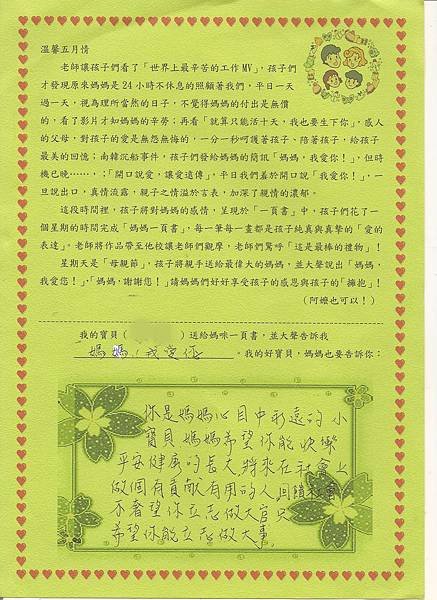 溫馨五月情
老師讓孩子們看了「世界上最辛苦的工作MV」，孩子們
才發現原來媽媽是24小時不休息的照顧著我們，平日一天
過一天，視為理所當然的日子，不覺得媽媽的付出是無價
的，看了影片才知媽媽的辛勞；再看「就算只能活十天，我也要生下你」，感人
的父母，對孩子的愛是無怨無悔的，一分一秒呵護著孩子、陪著孩子，給孩子
最美的回憶；南韓沉船事件，孩子們發給媽媽的簡訊「媽媽，我愛你！」，但時
機已晚……，；「開口說愛，讓愛遠傳」，平日我們羞於開口說「我愛你！」，一
旦說出口，真情流露，親子之情溢於言表，加深了親情的濃郁。
這段時間裡，孩子將對媽媽的感情，呈現於「一頁書」中，孩子們花了一
個星期的時間完成「媽媽一頁書」，每一筆每一畫都是孩子純真與真摯的「愛的
表達」。老師將作品帶至他校讓老師們觀摩，老師們驚呼「這是最棒的禮物」！
星期天是「母親節」，孩子將親手送給最偉大的媽媽，並大聲說出「媽媽，
我愛您！」，「媽媽，謝謝您！」請媽媽們好好享受孩子的感恩與孩子的「擁抱」！
（阿嬤也可以！）
我的寶貝（ ）送給媽咪一頁書，並大聲告訴我
媽媽，我愛你 。我的好寶貝，媽媽也要告訴你：
你是媽媽心目中永遠的小
寶貝 媽媽希望你能快樂
平安健康的長大 將來在社會上
做個有貢獻有用的人 回饋社會
不奢望你立志做大官只
希望你能立志做大事.